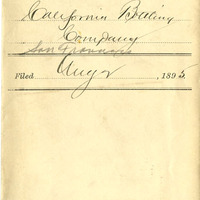 California Baling
Company
San Francisco
Filed Aug 2, 1895